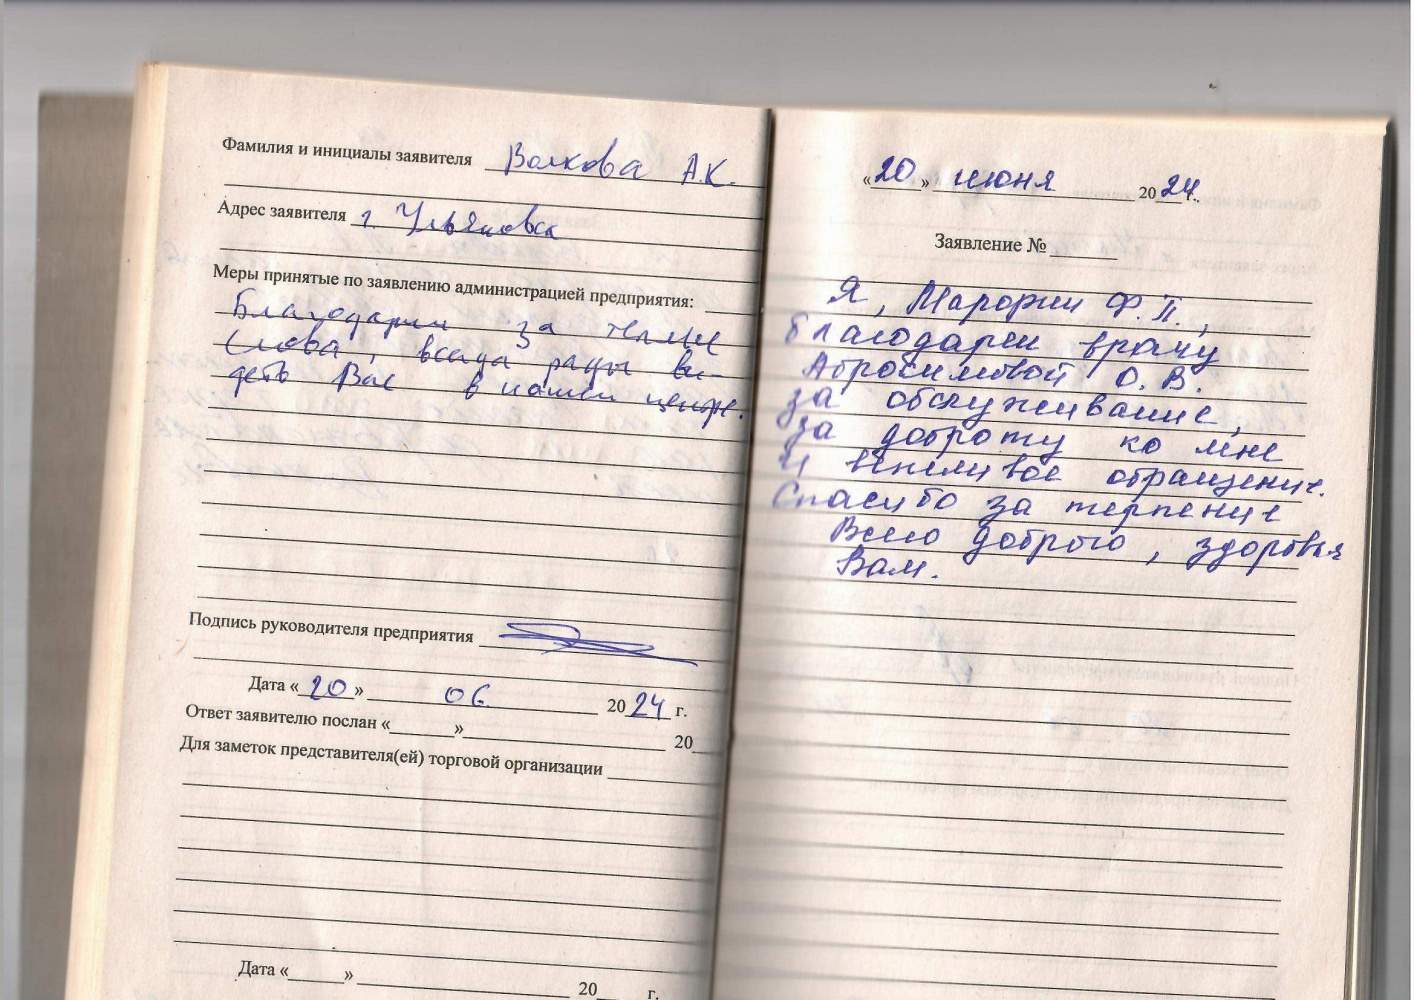 Фамилия и инициалы заявителя Волкова А.К.
Адрес заявителя г. Ульяновск
Меры принятые по заявлению администрацией предприятия:
Благодарим за теплые
слова, всегда рады ви-
деть Вас в нашем центре.
Подпись руководителя предприятия
Дата «20» 06 2024 г.
Ответ заявителю послан «______» 20
Для заметок представителя(ей) торговой организации
Дата «______» 20 г.
«20» июня 2024 г.
Заявление №
Я, Ф.П.,
благодарен врачу
Абросимовой О.В.
за обслуживание,
за доброту ко мне
и вежливое обращение.
Спасибо за терпение
Всего доброго, здоровья
Вам.